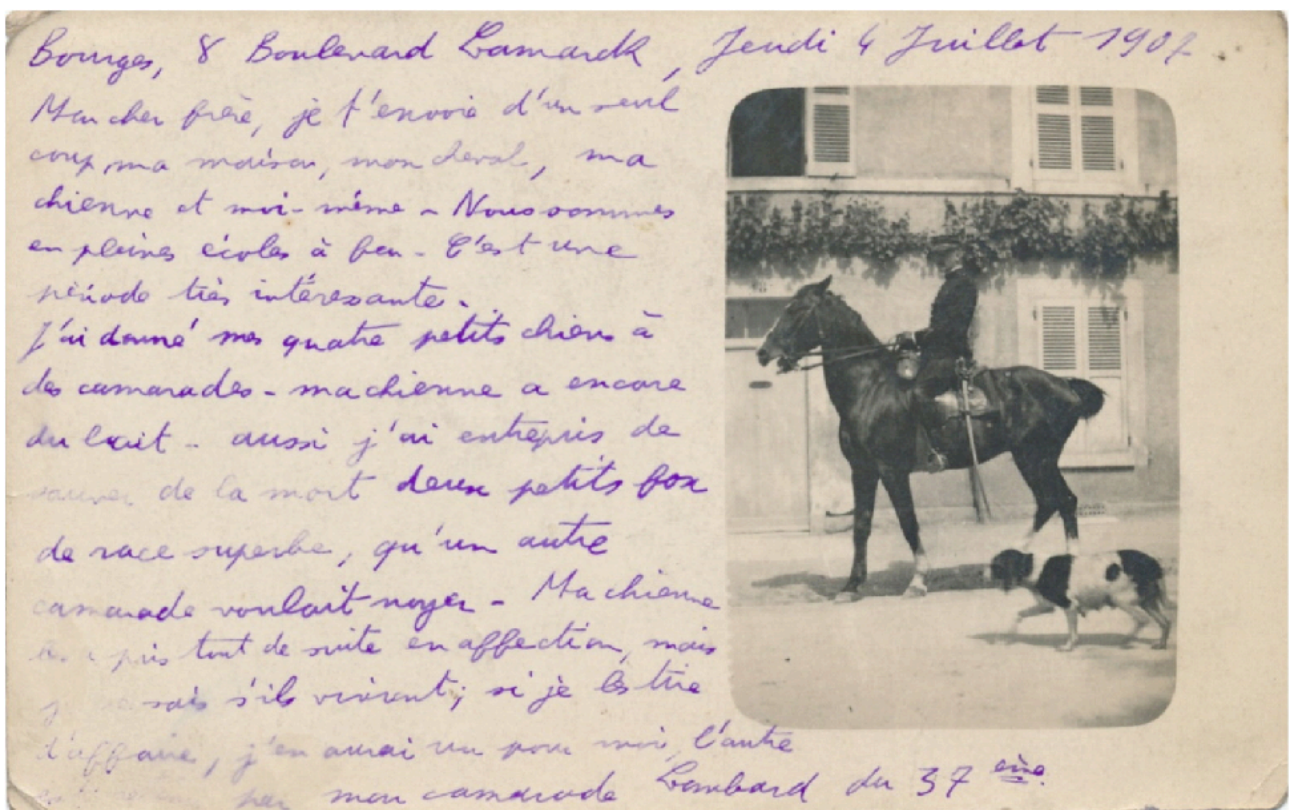 Bourges, 8 Boulevard Lamarck, Jeudi 4 Juillet 1907
Mon cher frère, je t'envoie d'un seul
coup, ma maison, mon cheval, ma
chienne et moi-même - Nous sommes
en pleines écoles à feu - C'est une
période très intéressante.
J'ai donné mes quatre petits chiens à
des camarades - ma chienne a encore
du lait - aussi j'ai entrepris de
sauver de la mort deux petits fox
de race superbe, qu'un autre
camarade voulait noyer - Ma chienne
les a pris tout de suite en affection, mais
je ne sais s'ils vivront; si je les tire
d'affaire, j'en aurai un pour moi, l'autre
mon camarade Lombard du 37 ème.